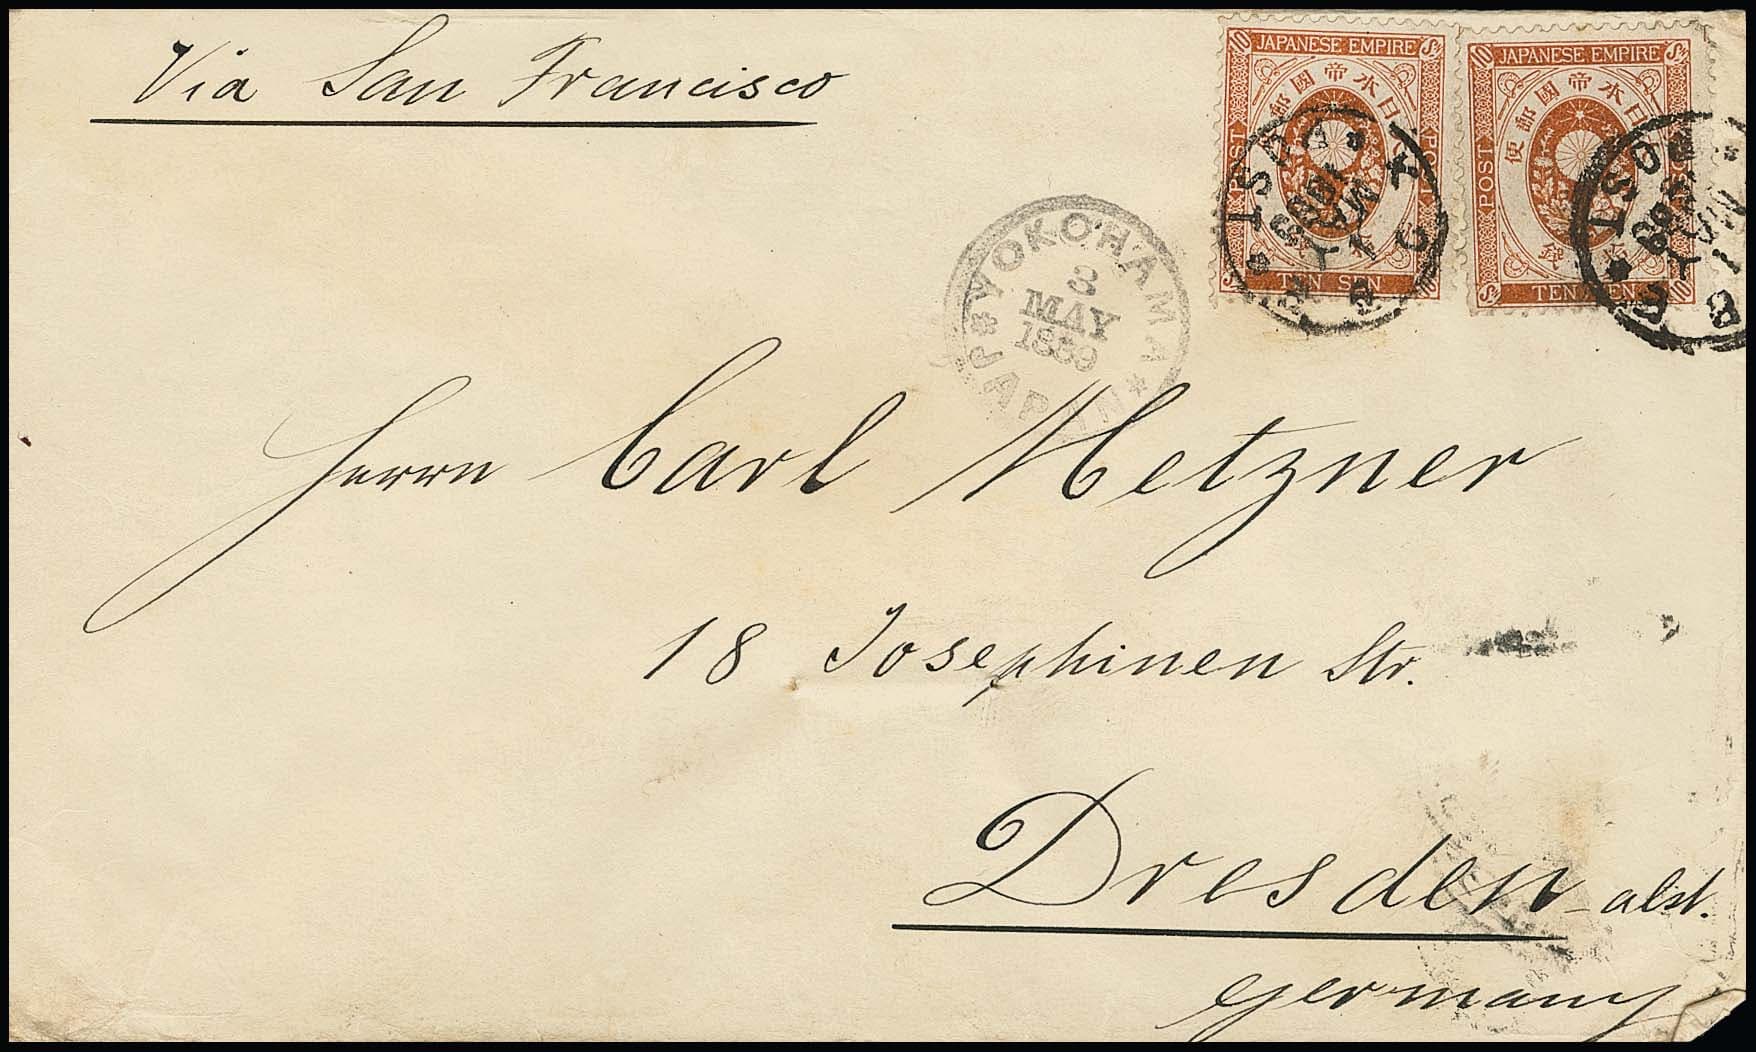 Via San Francisco
10 JAPANESE EMPIRE Sn
大日本帝國郵便
POST
TEN SEN
10 JAPANESE EMPIRE Sn
大日本帝國郵便
POST
TEN SEN
Sn 10
POST
1 MAY
POST
1 MAY
YOKOHAMA
3
MAY
1889
JAPAN
Herrn Carl Metzner
18 Josephinen Str.
Dresden - alst.
Germany